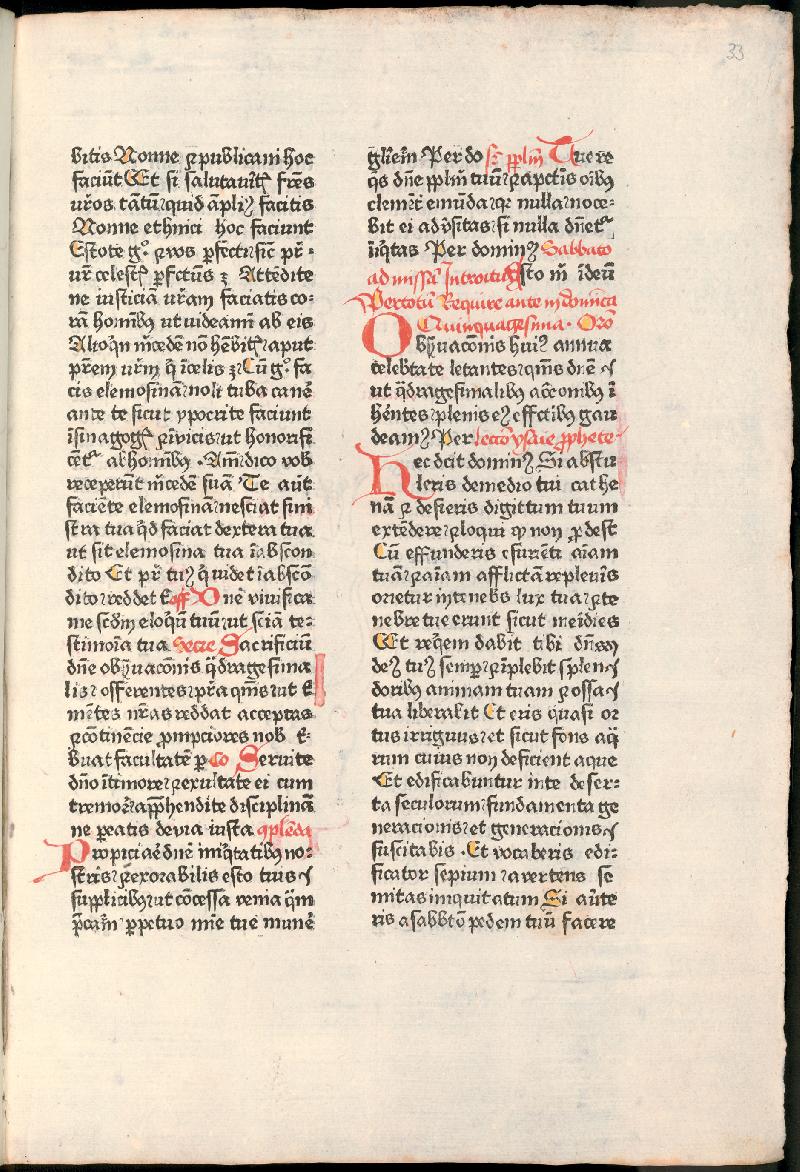 33
bitis Nonne ⁊ publicani hoc
faciūt Et si salutauit͛ frēs
vr̄os tātū quid āpli⁹ facitis
Nonne ethnici hoc faciunt
Estote g° ⁊ vos ꝑfecti sic pr̄
vr̄ celest͛ ꝑfctūs ē Attēdite
ne iusticiā vr̄am faciatis co:
rā homībꝰ ut videamī ab eis
Alioqn̄ m̄cedē nō hēbit͛ aput
prēm vr̄m q̄ ī celis ē Cū g° fa
cis elemosinā noli tuba canē
ante te sicut ypocrite faciunt
ī sinagog͛ ⁊ ī vicis ut honorifi
cēt͛ ab homībꝰ Am̄ dico vob
receperūt m̄cedē suā Te aūt
faciēte elemosinā nesciat sini
stra tua qd̄ faciat dextera tua
ut sit elemosina tua ī abscon
dito Et pr̄ tu⁹ q̄ videt ī abscō
dito reddet t̄ off Dn̄e viuifica
me scdm̄ eloqū tuū ut sciā te:
stimoīa tua Secre Sacrificiū
dn̄e obẜuacōnis q̄dragesima
lis offerentes pr̄a qm̄s ut t̄
mētes nr̄as reddat acceptas
⁊ cōtinēcie prompciores nob t̄
buat facultatē ꝑ Co Seruite
dn̄o ī timore ⁊ exultate ei cum
tremore apphendite disciplinā
ne ꝑeatis de via iusta qplēda
Propiciare dn̄e iniq̄tatibꝰ no:
stris ⁊ exorabilis esto tuis
supplicibꝰ ut cōcessa venia q̄m
ꝑcam̄ ꝑpetuo mīe tue munē
gl̄iem̄ Per do sr̄ ppl̄m Tuere
qs dn̄e ppl̄m tuū ⁊ a pctīs oībꝰ
clemēt͛ emūda qꝛ nulla noce:
bit ei adūsitas si nulla dn̄et͛
iniq̄tas Per dominū Sabbato
ad missā Introitus Esto m̄ ī deū
Per totū Require ante in domīca
Quinquagesima Oro
Obẜuacōnis hui⁹ annua
celebtate letantes qm̄s dn̄e
ut q̄dragesimalibꝰ accōibꝰ ī
hēntes plenis ei⁹ effctibꝰ gau
deam⁹ Per lecto ysaie prophete
Hec dcit domin⁹ Si abstu
leris de medio tui cathe
nā ⁊ desieris digittum tuum
extēdere ⁊ loqui qꝫ non ꝓdest
Cū effunderis esurēti aīam
tuā ⁊ aīam afflictā repleuis
orietur in tenebs lux tua ⁊ te
nebre tue erunt sicut meīdies
Et reqēm dabit tibi dn̄s
de⁹ tu⁹ semp ⁊ īplebit splen
doribus animam tuam ⁊ ossa
tua liberabit Et eris quasi or
tus irriguus et sicut fons aq̄
rum cuius non deficient aque
Et edificabuntur in te deser:
ta seculorum fundamenta ge
neracionis et generacionis
suscitabis Et vocaberis edi:
ficator sepium auertens se
mitas iniquitatum Si auīte
ris a sabbtō pedem tuū facere